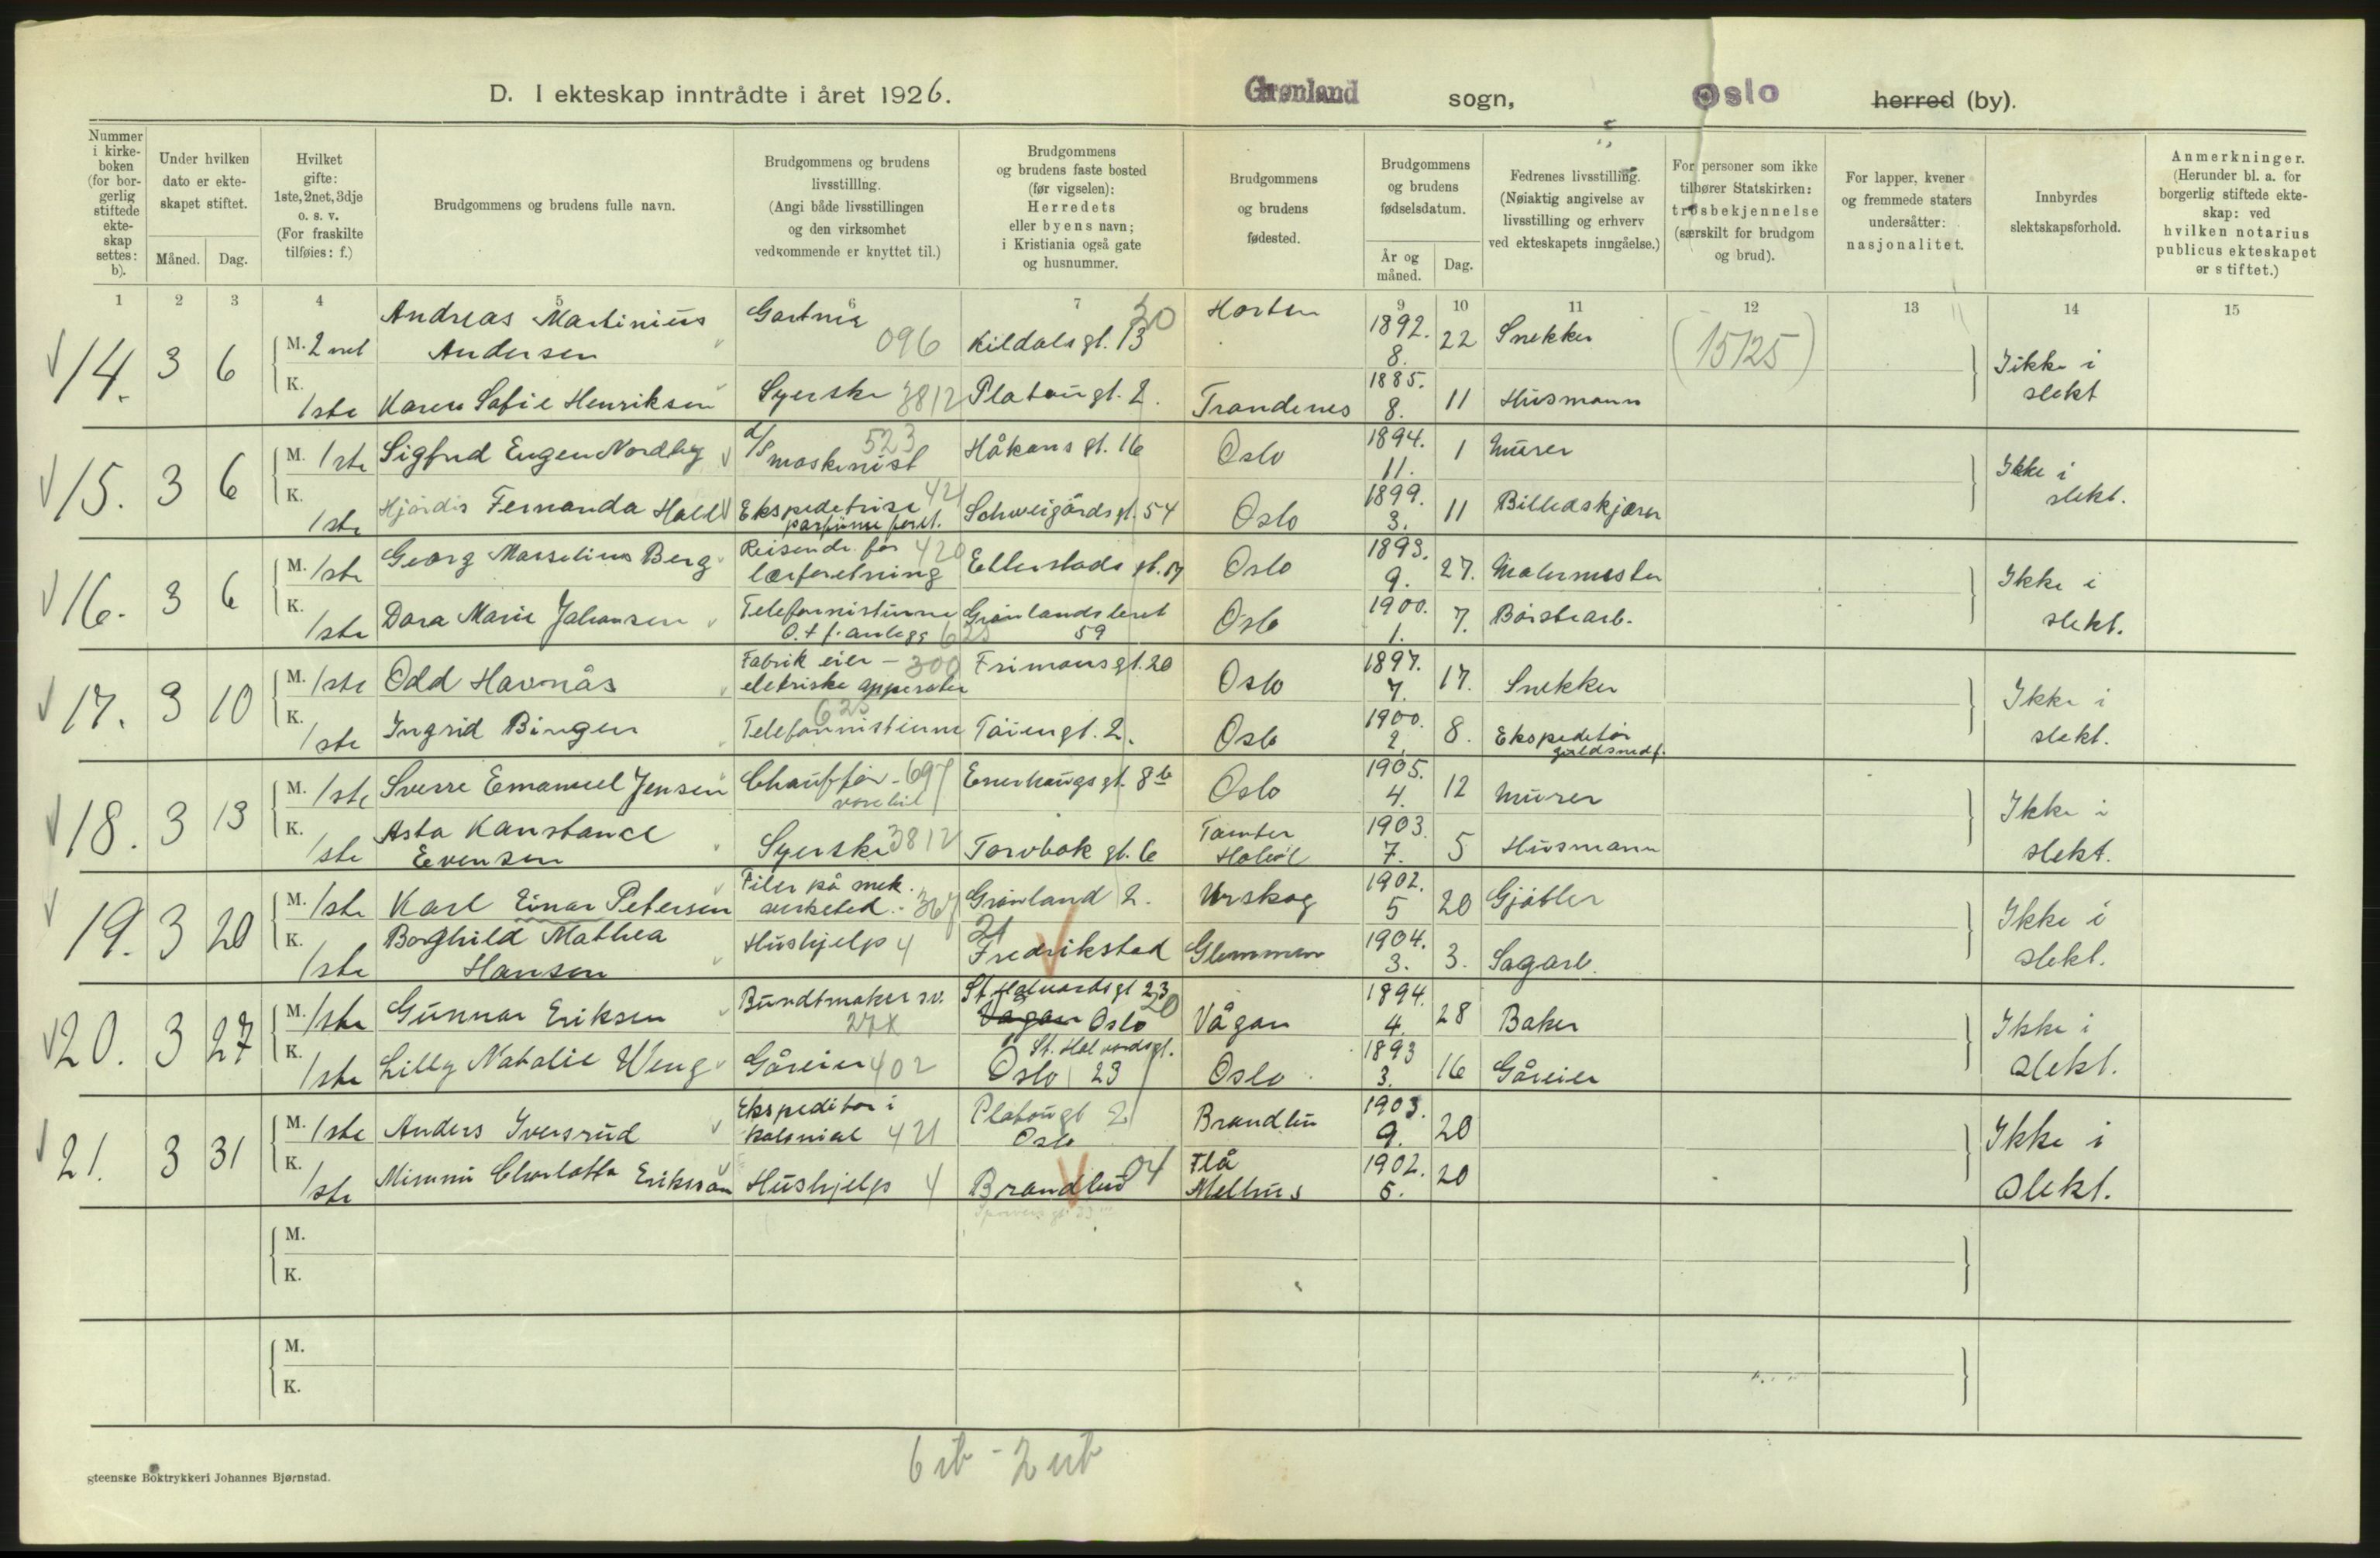 D. I ekteskap inntrådte i året 1926. Grønland sogn, Oslo herred (by).
Nummer i kirke- boken (for bor- gerlig stiftede ekte- skap settes: b).
Under hvilken dato er ekte- skapet stiftet.
Måned. Dag.
Hvilket gifte: 1ste, 2net, 3dje o. s. v. (For fraskilte tilføies: f.)
Brudgommens og brudens fulle navn.
Brudgommens og brudens livsstilling. (Angi både livsstillingen og den virksomhet vedkommende er knyttet til.)
Brudgommens og brudens faste bosted (før vigselen): Herredets eller byens navn; i Kristiania også gate og husnummer.
Brudgommens og brudens fødested.
Brudgommens og brudens fødselsdatum.
År og måned. Dag.
Fedrenes livsstilling. (Nøiaktig angivelse av livsstilling og erhverv ved ekteskapets inngåelse.)
For personer som ikke tilhører Statskirken: trosbekjennelse (særskilt for brudgom og brud).
For lapper, kvener og fremmede staters undersåtter: nasjonalitet.
Innbyrdes slektskapsforhold.
Anmerkninger. (Herunder bl. a. for borgerlig stiftede ekte- skap: ved hvilken notarius publicus ekteskapet er stiftet.)
1 2 3 4 5 6 7 9 10 11 12 13 14 15
14. 3 6 M. 2net Andreas Martinius Andersen Gartner 096 Kildals gt. 13 20 Horten 1892. 8. 22 Snekker (15125) Ikke i slekt
K. 1ste Karen Sofie Henriksen Syerske 3812 Platous gt. 2. Trondenes 1885. 8. 11 Husmann
15. 3 6 M. 1ste Sigfred Eugen Nordby d/s maskinist 523 Håkons gt. 16 Oslo 1894. 11. 1 Murer Ikke i slekt.
K. 1ste Hjørdis Fernanda Hall Ekspeditrise parfume foret. 421 Schweigårds gt. 54 Oslo 1899. 3. 11 Billedskjærer
16. 3 6 M. 1ste Georg Marselius Berg Reisende for lærforetning 420 Etterstads gt. 17 Oslo 1893. 9. 27. Malermester Ikke i slekt.
K. 1ste Dora Marie Johansen Telefonistinne O. t f. anlegg 625 Grønlandsleret 59 Oslo 1900. 1. 7. Børstearb.
17. 3 10 M. 1ste Odd Havnås Fabrik eier - elektriske apperater 300 Frimans gt. 20 Oslo 1897. 7. 17. Snekker Ikke i slekt.
K. 1ste Ingrid Bingen Telefonnistinne 625 Tøien gt. 2. Oslo 1900. 2. 8. Ekspeditør guldsmedf.
18. 3 13 M. 1ste Sverre Emanuel Jensen Chauffør - varebil 697 Enerhaugs gt. 8b Oslo 1905. 4. 12 Murer Ikke i slekt.
K. 1ste Asta Konstance Evensen Syerske 3812 Torvbak gt. 6 Tomter Hobøl 1903. 7. 5 Husmann
19. 3 20 M. 1ste Karl Einar Petersen Filer på mek. verksted. - 367 Grønland 2. Urskog 1902. 5 20 Gjøtler Ikke i slekt.
K. 1ste Borghild Mathea Hansen Hushjelp 4 21 Fredrikstad Glemmen 1904. 3. 3. Sagarb.
20. 3 27 M. 1ste Gunnar Eriksen Buntmaker sv. 27X St. Halvards gt 23 Vågan Oslo 20 Vågan 1894. 4. 28 Baker Ikke i slekt.
K. 1ste Lilly Natalie Weng Gåreier 402 St. Halvards gt. Oslo 23 Oslo 1893 3. 16 Gåreier
21. 3 31 M. 1ste Anders Iversrud Ekspeditør i kolonial 421 Platous gt 2 Oslo Brandbu 1903. 9. 20 Ikke i slekt.
K. 1ste Mimmi Charlotta Eriksson Hushjelp 4 Brandbu 04 Flå Melhus 1902. 5. 20
M.
K.
M.
K.
gteenske Boktrykkeri Johannes Bjørnstad.
6 ib - 2 ub